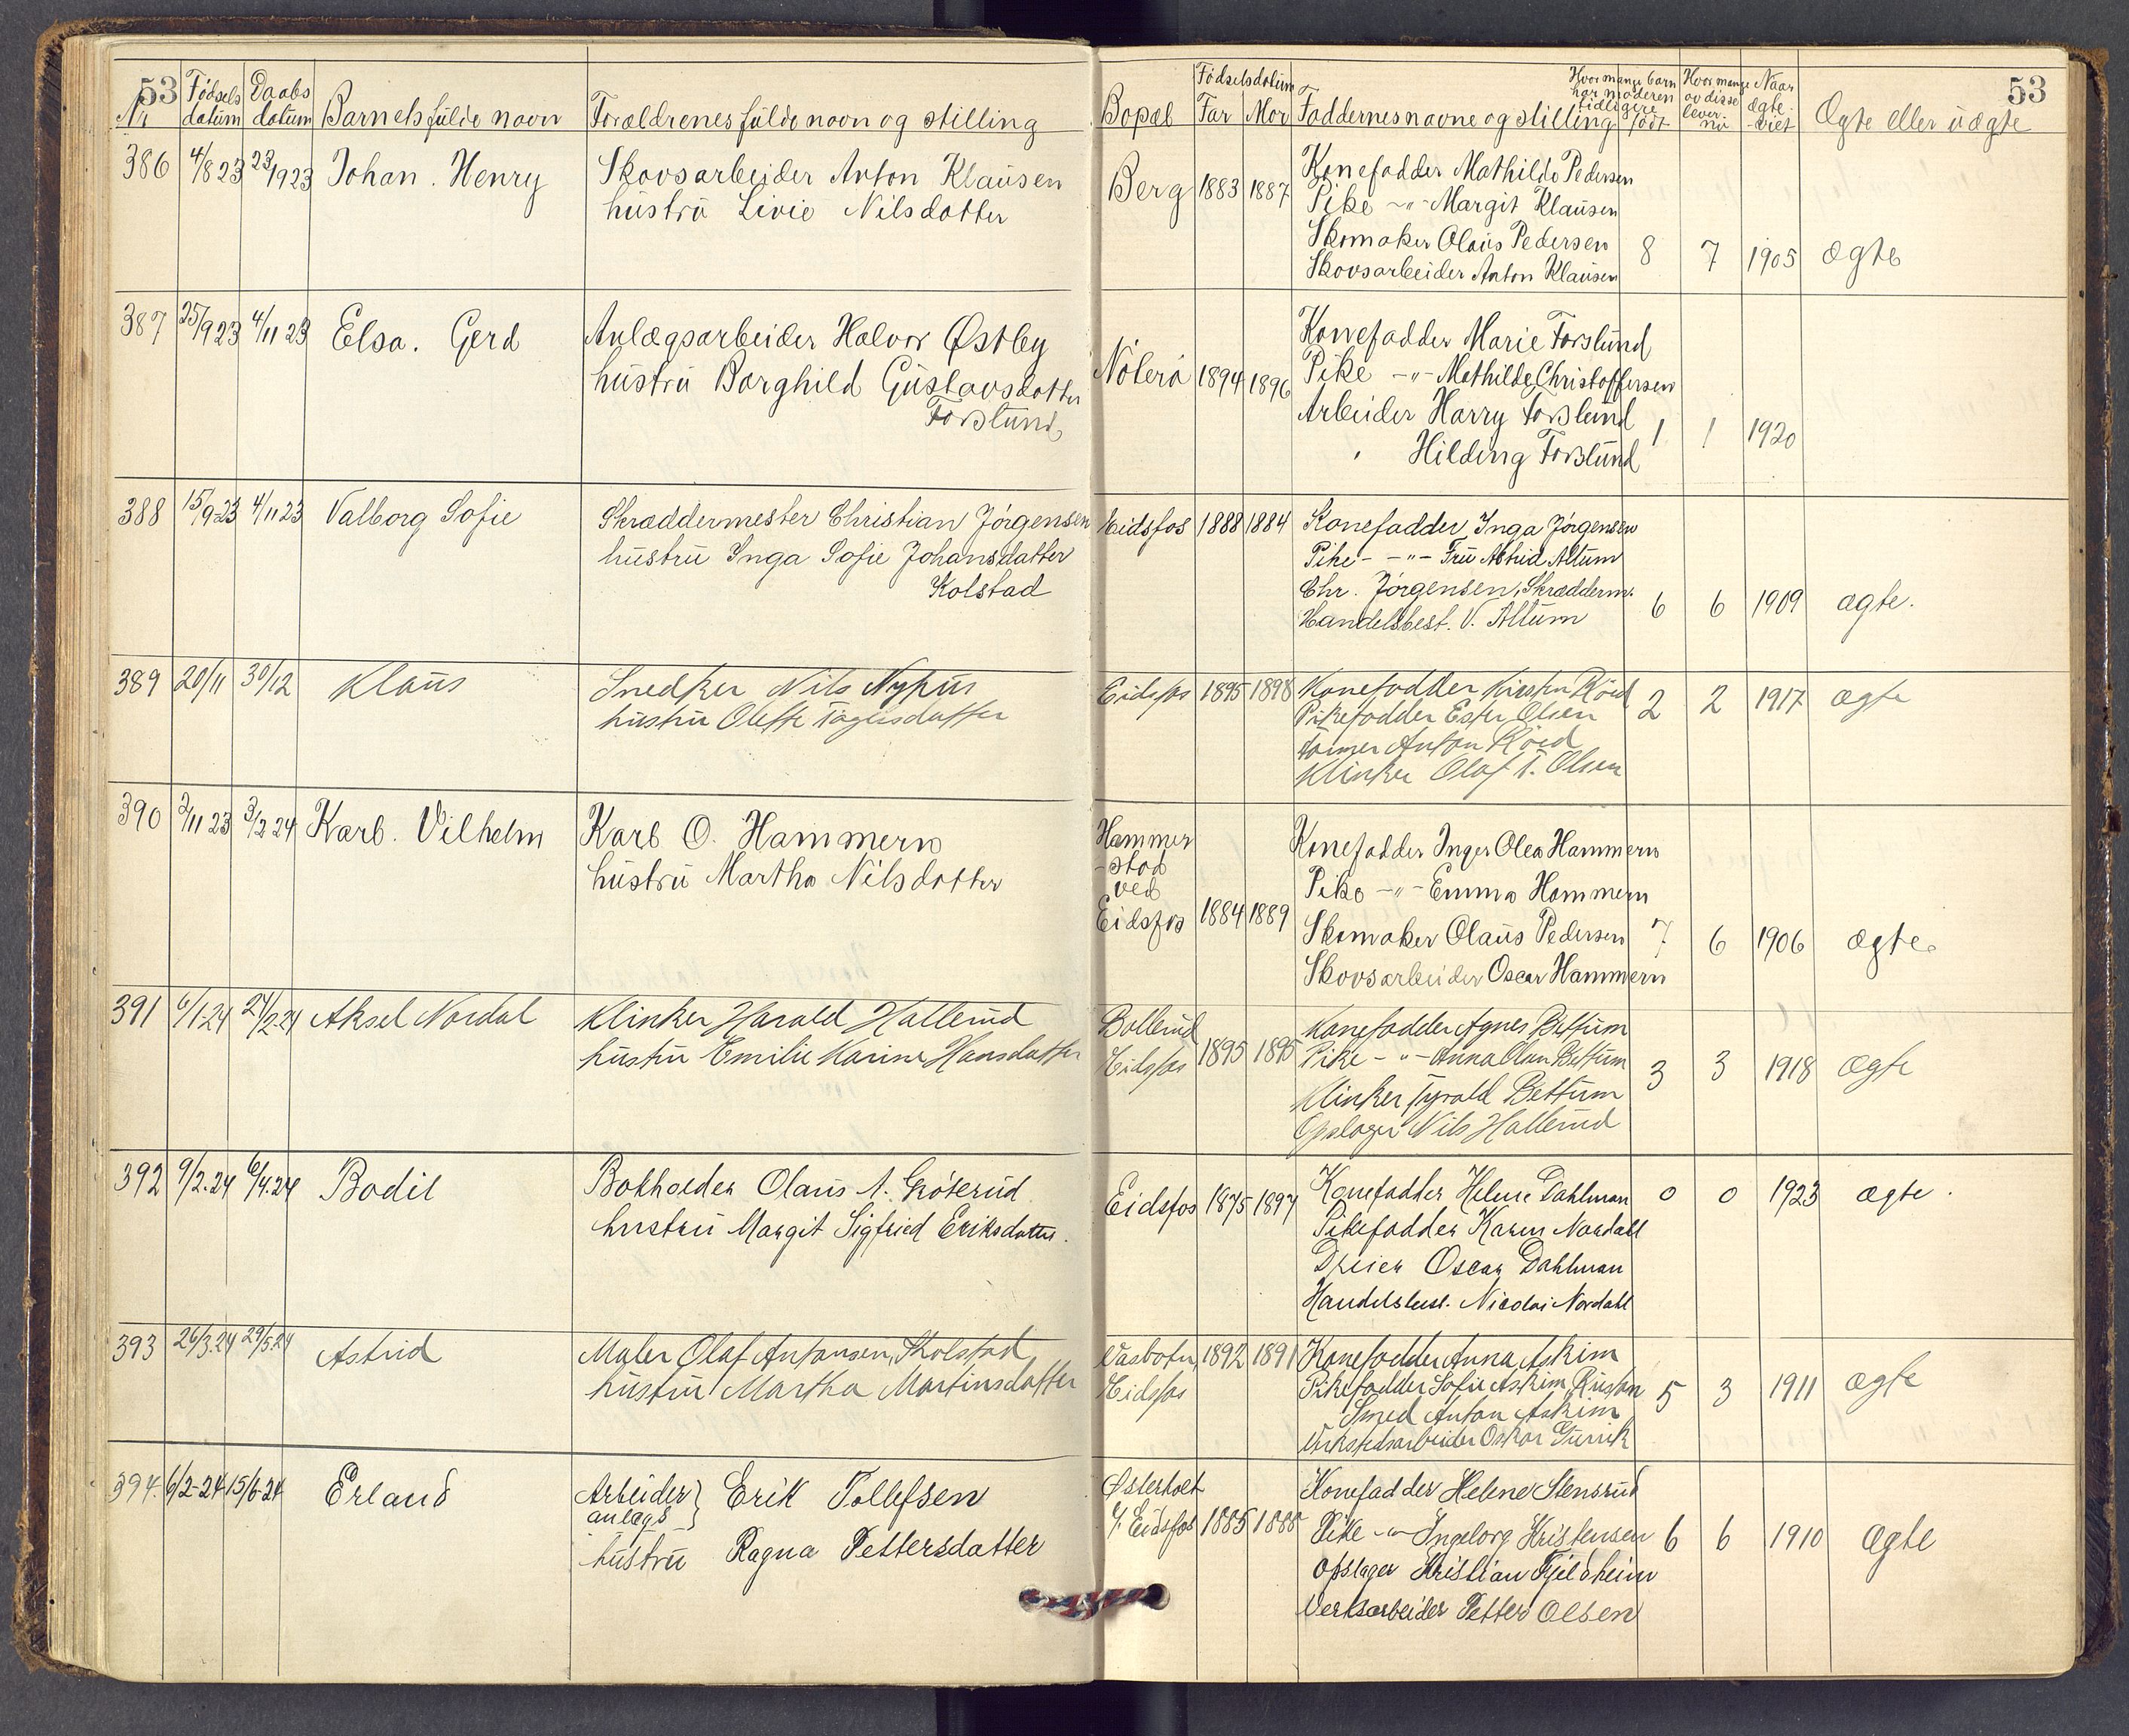 53
Nr
Fødsels datum
Daabs datum
Barnets fulde navn
Forældrenes fulde navn og stilling
Bopæl
Fødselsdatum
Far
Mor
Faddernes navne og stilling
Hvor mange barn har moderen tidligere født
Hvor mange av disse lever nu
Naar ægteviet
Ægte eller uægte
53
386 4/8 23 23/9 23 Johan. Henry
Skovsarbeider Anton Klausen
hustru Livie Nilsdatter
Berg 1883 1887
Konefadder Mathilde Pedersen
Pike -"- Margit Klausen
Skomaker Olaus Pedersen
Skovsarbeider Anton Klausen
8 7 1905 ægte
387 25/9 23 4/11 23 Elsa. Gerd
Anlægsarbeider Halvor Østby
hustru Borghild Gustavsdatter
Forslund
Nøterø 1894 1896
Konefadder Marie Forslund
Pike -"- Mathilde Christoffersen
Arbeider Harry Forslund
" Hilding Forslund
1 1 1920
388 15/9 23 4/11 23 Valborg Sofie
Skræddermester Christian Jørgensen
hustru Inga Sofie Johansdatter
Kolstad
Eidsfos 1888 1884
Konefadder Inga Jørgensen
Pike- -"- Fru Astrid Altum
Chr. Jørgensen, Skrædderm.
Handelsbest. V. Altum
6 6 1909 ægte.
389 20/11 30/12 Klaus
Snedker Nils Nyhus
hustru Olette
Eidsfos 1895 1898
Konefadder Kirsten Röed
Pikefadder Ester Olsen
Anton Röed
Klinker Olaf T. Olsen
2 2 1917 ægte
390 2/11 23 3/2 24 Karl. Vilhelm
Karl O. Hammern
hustru Martha Nilsdatter
Hammer
-stad
ved
Eidsfos 1884 1889
Konefadder Inger Olea Hammern
Pike -"- Emma Hammern
Skomaker Olaus Pedersen
Skovsarbeider Oscar Hammern
7 6 1906 ægte.
391 6/1-24 24/2-24 Aksel Nordal
Klinker Harald Hallerud
hustru Emilie Karine Hansdatter
Bollerud
Eidsfos 1895 1895
Konefadder Agnes Bettum
Pike - " - Anna Bettum
Klinker Tyrald Bettum
Opslager Nils Hallerud
3 3 1918 ægte
392 9/2.24 6/4.24 Bodil
Bokholder Olaus A. Grøterud
hustru Margit Sigfried Eriksdatter.
Eidsfos 1875 1897
Konefadder Helene Dahlman
Pikefadder Karen Nordahl
Dreier Oscar Dahlman
Handelsbest. Nicolai Nordahl
0 0 1923 ægte.
393 26/3.24 29/5.24 Astrid
Maler Olaf Antonsen, Skolstad
hustru Martha Martinsdatter
Vasbotn,
Eidsfos 1892 1891
Konefadder Anna Askim
Pikefadder Sofie Askim,
Smed Anton Askim
Verkstedsarbeider Oskar
5 3 1911 ægte
394. 6/2-24 15/6-24 Erland
Arbeider
anlægs } Erik Tollefsen
hustru Ragna Pettersdatter
Østerholt
p. Eidsfos 1885 1888
Konefadder Helene Stensrud
Pike -"- Ingeborg Kristensen
Opslager Kristian Fjeldheim
Verksarbeider Petter Olsen
6 6 1910 ægte